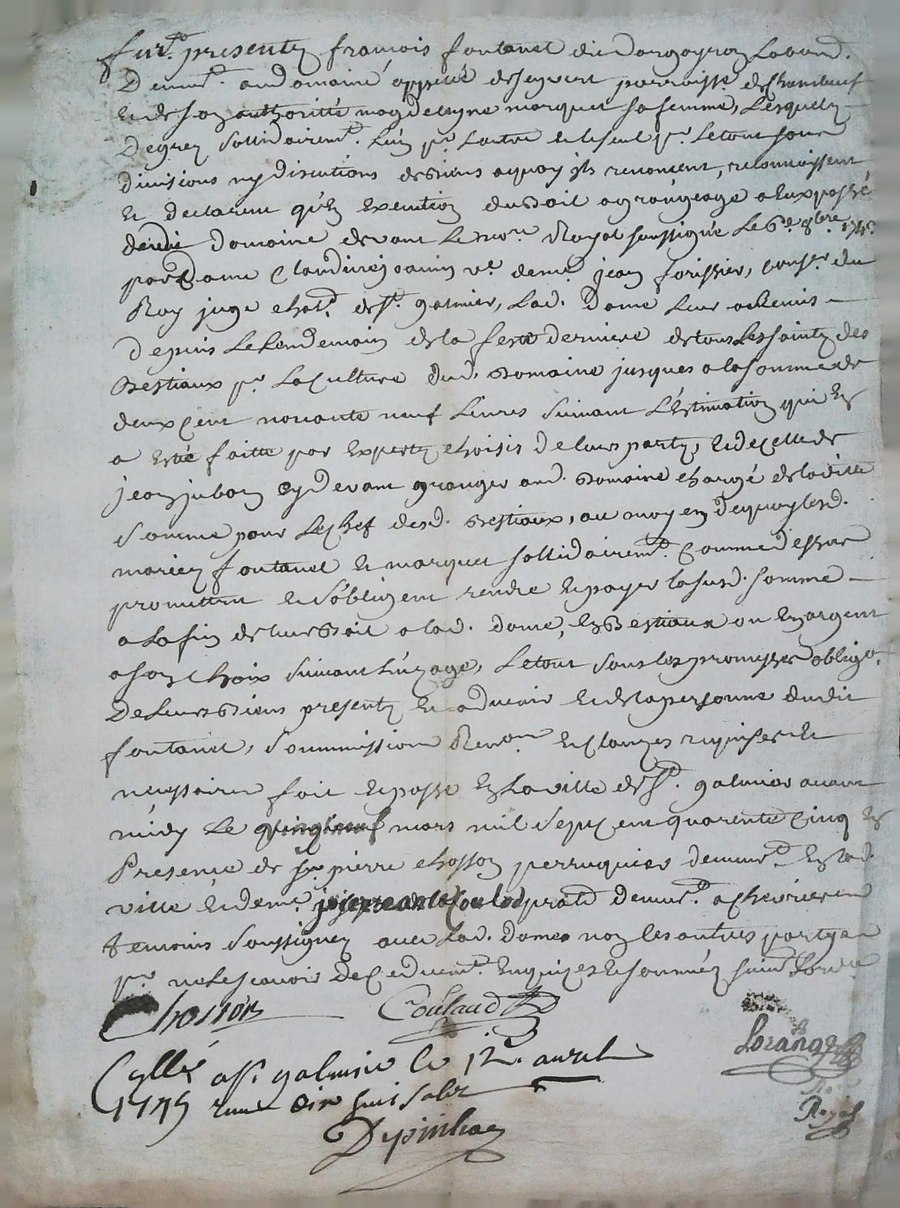 furt. presentz francois fontanet dit Labour.
Demt. au domaine appellé de parroisse de Chambeuf
et de son authorité magdelayne marquet sa femme, Lesquelz
De grez sollidairemt. L'un pr. L'autre et le seul pr. Le tout sans
divisions ny discutions de biens a quoy ils renoncent, reconnoissent
Et declarent qu'en Exécution du bail a grangeage a Eux passé
dudit Domaine devant Le nore. Royal soussigné Le 6e. 8bre
par dame Claudine Joanin ve. de me. jean forissier, consr. du
Roy juge chatn. de St. galmier, Lad. Dame Leur a Remis
Depuis Le Lendemain de la feste derniere de tous Les saintz des
Bestiaux pr. La Culture dud. Domaine jusques a la somme de
deux cent nonante neuf Livres suivant L'Estimation qui En
a Esté faitte par Expertz choisis de leur part, et de celle de
jean juban cy devant granger aud. Domaine chargé de ladite
somme pour Le chef desd. Bestiaux, au moyen de quoy lesd.
mariez fontanet et marquet sollidairemt. Comme dessus
promettent et s'obligent rendre et payer la susd. somme
a La fin de leur Bail a lad. dame, En Bestiaux ou En argent
a son Choix suivant L'uzage, Le tout sous les promesses obligo.
De Leurs Biens presentz Et advenir et de la personne dudit
fontanet, soummissions Renon. et Clauzes requises Et
necessaires fait et passé En La ville de St. galmier avant
midy Le mars mil sept cent quarente Cinq En
Presence de sr. pierre chosson perruquier demeurt. En lad.
ville et de me. demeurt. a chevrieres
temoins soussignez avec Lad. Dame, non les autres partyes
pr. ne le scavoir De Ce duemt. Enquizes et sommées suivt. L'ordce
Chosson Coulaud
Lorange
Cllé a St. galmier le 12e. avril
1745 reçu dix huit sols
Royal
Depinhac